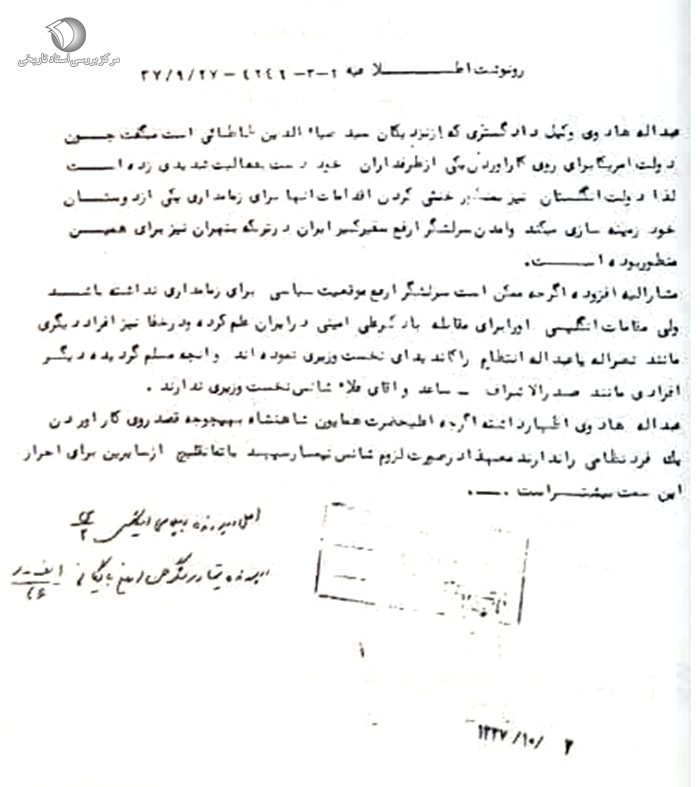 مرکز بررسی اسناد تاریخی
رونوشت اطلاعیه ۲-۳-۴۲۴۶-۳۷/۹/۲۷
عبداله هادوی وکیل دادگستری که از نزدیکان سید ضیاء الدین طباطبائی است میگفت چون
دولت امریکا برای روی کار آوردن یکی از طرفداران خود دست بفعالیت شدیدی زده است
لذا دولت انگلستان نیز بمنظور خنثی کردن اقدامات انها برای زمامداری یکی از دوستان
خود زمینه سازی میکند وامدن سرلشگر ارفع سفیر کبیر ایران در ترکیه بتهران نیز برای همین
منظور بوده است.
مشارالیه افزوده اگرچه ممکن است سرلشگر ارفع موقعیت سیاسی برای زمامداری نداشته باشد
ولی مقامات انگلیسی اورا برای مقابله با دکتر علی امینی در ایران علم کرده ودر خفا نیز افراد دیگری
مانند نصراله یا عبداله انتظام را کاندیدای نخست وزیری نموده اند وانچه مسلم گردیده دیگر
افرادی مانند صدرالاشراف - ساعد و اقای علاء شانس نخست وزیری ندارند .
عبداله هادوی اظهار داشته اگرچه اعلیحضرت همایون شاهنشاه بهیچوجه قصد روی کار اوردن
یك فرد نظامی را ندارند معهذا در صورت لزوم شانس تیمسار سپهبد باتمانقلیچ از سایرین برای احراز
این سمت بیشتر است .
اصل در پرونده
در پرونده بایگانی
۱۳۳۷/۱۰/ ۲